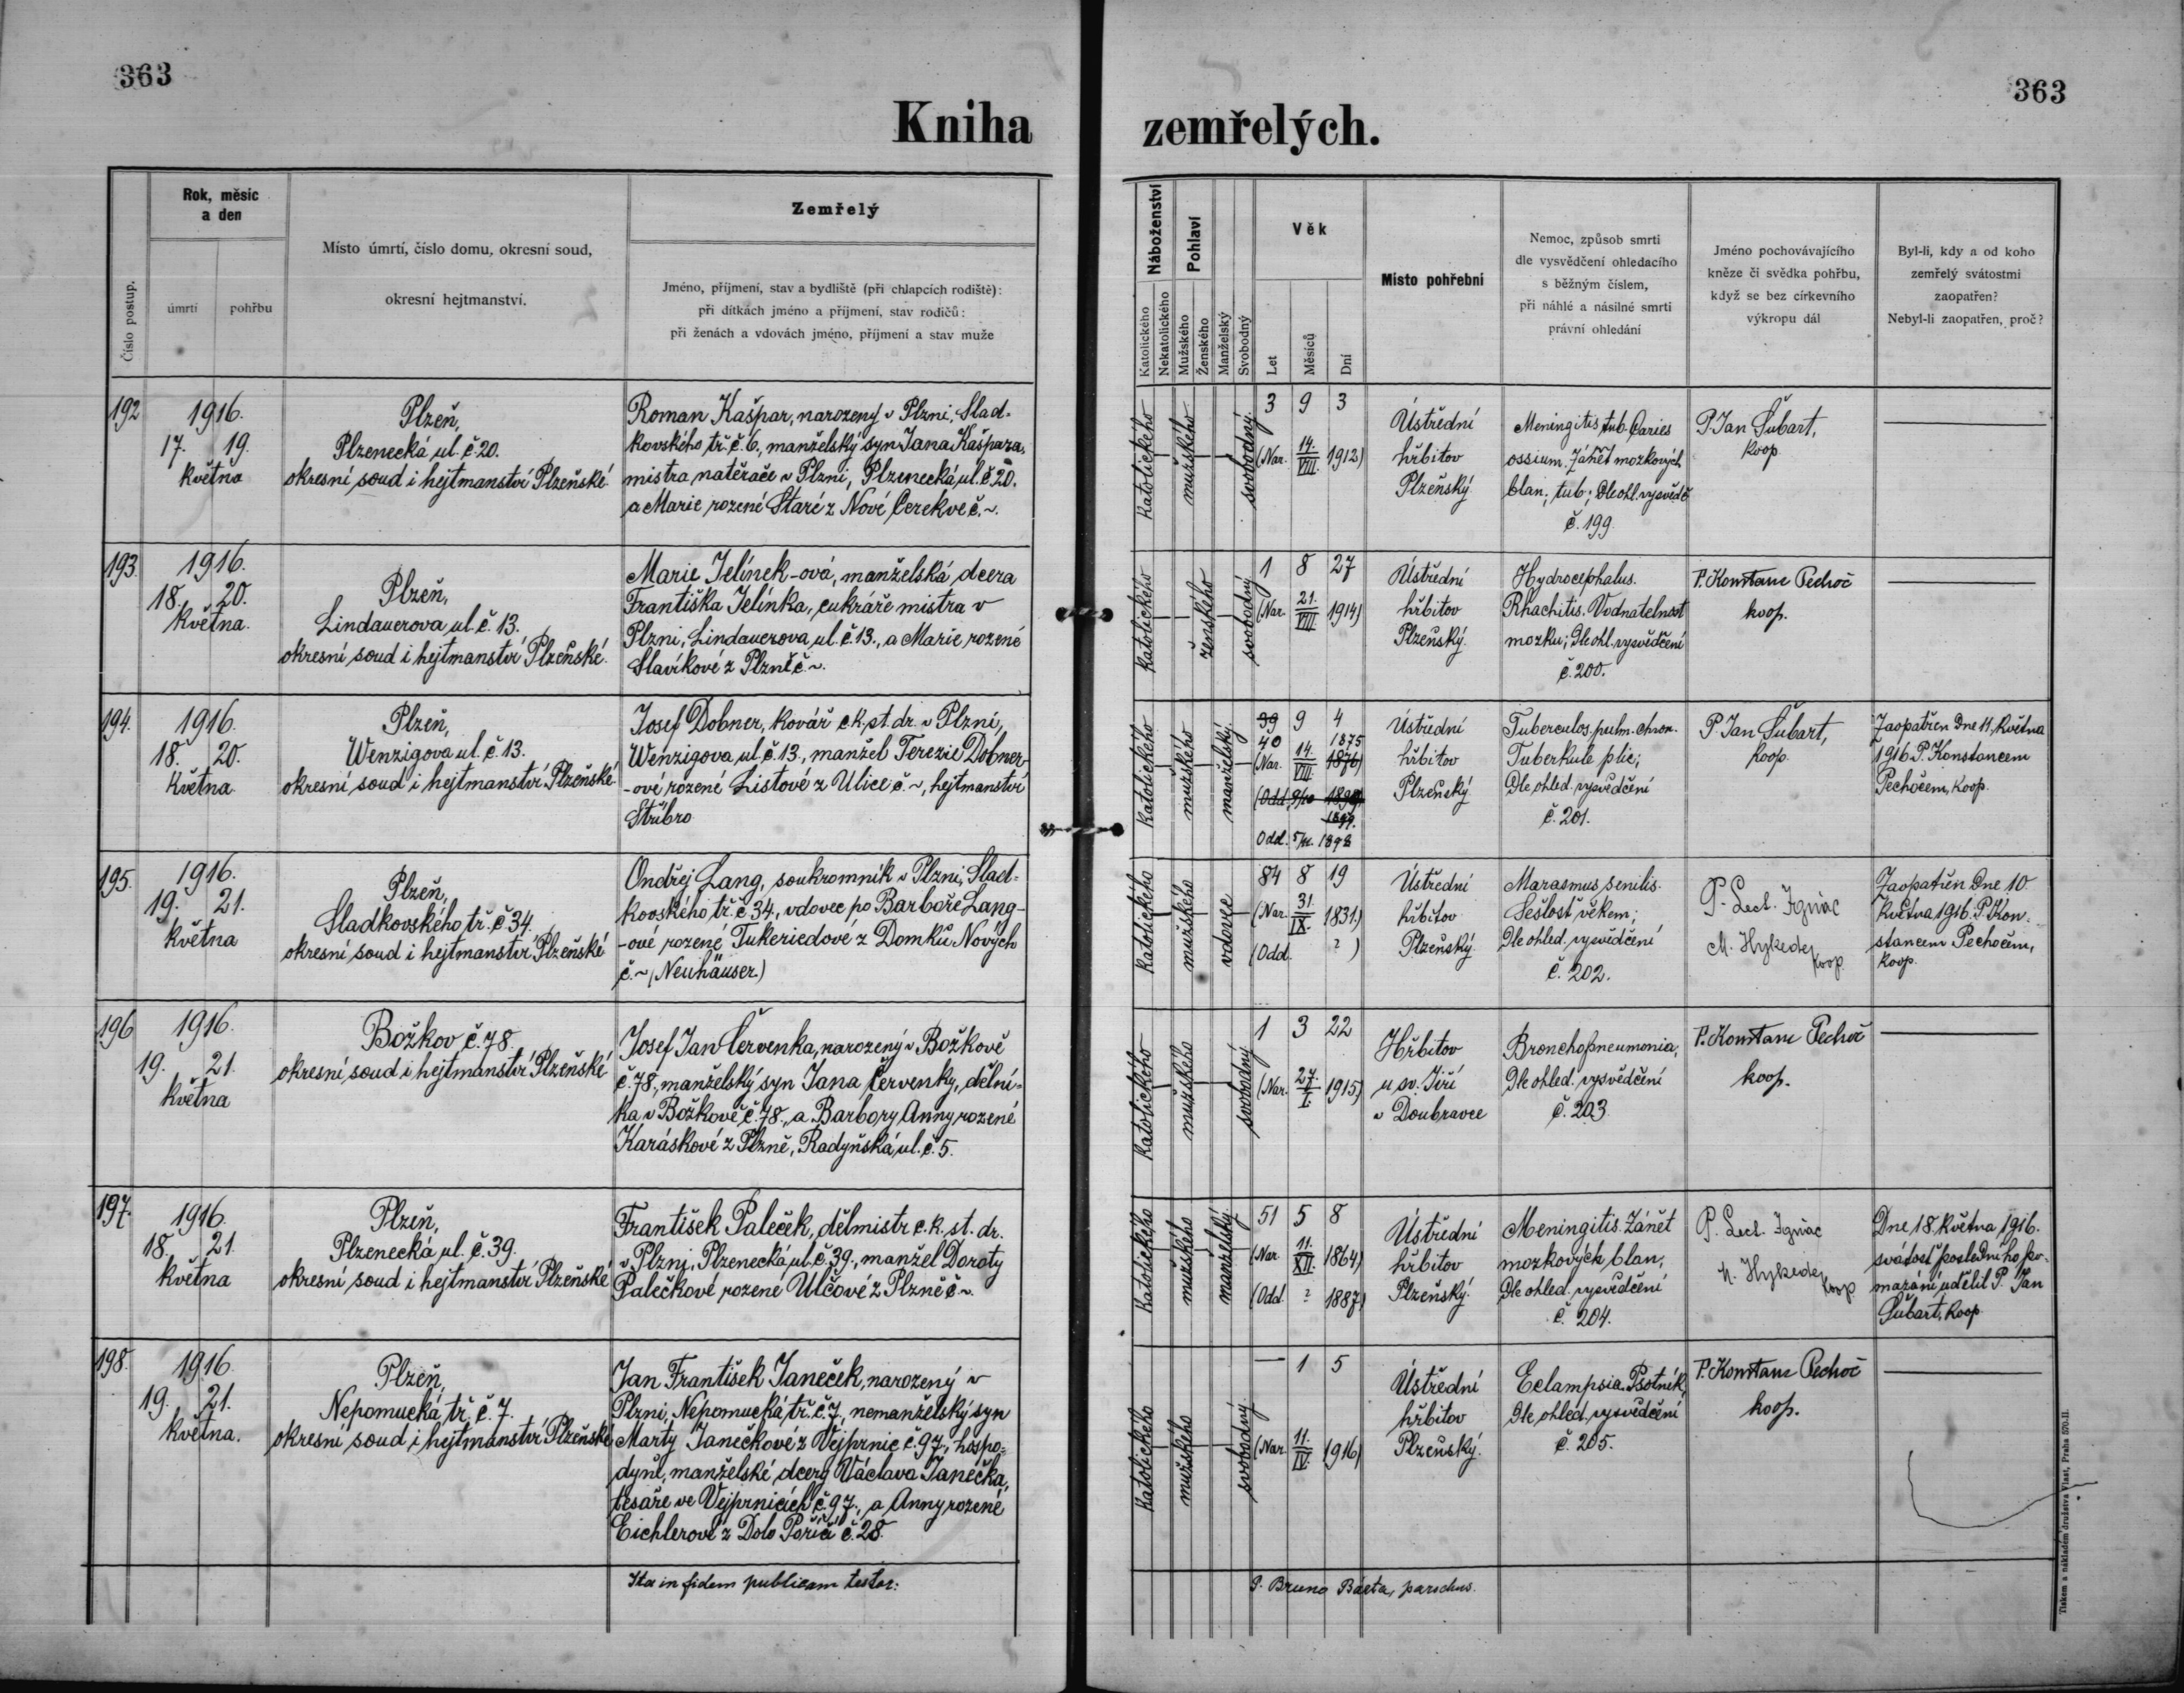 363
363
Kniha zemřelých.
Číslo postup.
Rok, měsíc
a den
úmrtí
pohřbu
Místo úmrtí, číslo domu, okresní soud,
okresní hejtmanství.
Zemřelý
Jméno, příjmení, stav a bydliště (při chlapcích rodiště):
při dítkách jméno a příjmení, stav rodičů:
při ženách a vdovách jméno, příjmení a stav muže
Náboženství
Katolického
Nekatolického
Pohlaví
Mužského
Ženského
Manželský
Svobodný
Věk
Let
Měsíců
Dní
Místo pohřební
Nemoc, způsob smrti
dle vysvědčení ohledacího
s běžným číslem,
při náhlé a násilné smrti
právní ohledání
Jméno pochovávajícího
kněze či svědka pohřbu,
když se bez církevního
výkropu dál
Byl-li, kdy a od koho
zemřelý svátostmi
zaopatřen?
Nebyl-li zaopatřen, proč?
192
1916.
17. 19.
května
Plzeň,
Plzenecká ul. č. 20.
okresní soud i hejtmanství Plzeňské.
Roman Kašpar, narozený v Plzni, Slad-
kovského tř. č. 6., manželský syn Jana Kašpara,
mistra natěrače v Plzni, Plzenecká ul. č. 20.
a Marie rozené Staré z Nové Cerekve č. ~.
katolického
mužského
svobodný
3 9 3
(Nar. 14. VIII. 1912)
Ústřední
hřbitov
Plzeňský
Meningitis tub. Caries
ossium. Zánět mozkových
blan, tub; Dle ohl. vysvědč
č. 199.
P. Jan Šubart,
koop.
193.
1916.
18. 20.
května.
Plzeň,
Lindauerova ul. č. 13.
okresní soud i hejtmanství Plzeňské.
Marie Jelínek-ová, manželská dcera
Františka Jelínka, cukráře mistra v
Plzni, Lindauerova ul. č. 13., a Marie rozené
Slavíkové z Plzně č. ~.
katolického
ženského
svobodný
1 8 27
(Nar. 21. VIII. 1914)
Ústřední
hřbitov
Plzeňský.
Hydrocephalus.
Rhachitis. Vodnatelnost
mozku; Dle ohl. vysvědčení
č. 200.
P. Konstanc Pechoč
koop.
194.
1916.
18. 20.
května
Plzeň,
Wenzigova ul. č. 13.
okresní soud i hejtmanství Plzeňské
Josef Dobner, kovář c. k. st. dr. v Plzni,
Wenzigova ul. č. 13., manžel Terezie Dobner-
-ové rozené Listové z Ulice č. ~, hejtmanství
Stříbro
katolického
mužského
manželský.
39 9 4
40 1875
(Nar. 14. VIII. 1876)
(Odd. 9/10 1899)
1899.
Odd. 5/10. 1898
Ústřední
hřbitov
Plzeňský
Tuberculos. pulm. chron.
Tuberkule plic;
Dle ohled. vysvědčení
č. 201.
P. Jan Šubart,
koop.
Zaopatřen dne 11. května
1916 P. Konstancem
Pechočem, koop.
195.
1916.
19. 21.
května
Plzeň,
Sladkovského tř. č. 34.
okresní soud i hejtmanství Plzeňské
Ondřej Lang, soukromník v Plzni, Slad-
kovského tř. č. 34., vdovec po Barboře Lang-
-ové rozené Tukeriedové z Domků Nových
č. ~ (Neuhäuser.)
katolického
mužského
vdovec
84 8 19
(Nar. 31. IX. 1831.)
(Odd. ? )
Ústřední
hřbitov
Plzeňský.
Marasmus senilis.
Sešlost věkem;
Dle ohled. vysvědčení
č. 202.
P. Lect. Ignác
M. Hykedej
koop.
Zaopatřen dne 10.
května 1916. P. Kon-
stancem Pechočem,
koop.
196
1916.
19. 21.
května
Božkov č. 78.
okresní soud i hejtmanství Plzeňské
Josef Jan Červenka, narozený v Božkově
č. 78, manželský syn Jana Červenky, dělní-
ka v Božkově č. 78., a Barbory Anny rozené
Karáskové z Plzně, Radyňská ul. č. 5.
katolického
mužského
svobodný
1 3 22
(Nar. 27. I. 1915)
Hřbitov
u sv. Jiří
v Doubravce
Bronchopneumonia,
Dle ohled. vysvědčení
č. 203
P. Konstanc Pechoč
koop.
197.
1916.
18. 21.
května
Plzeň,
Plzenecká ul. č. 39.
okresní soud i hejtmanství Plzeňské
František Paleček, dělmistr c. k. st. dr.
v Plzni, Plzenecká ul. č. 39., manžel Doroty
Palečkové rozené Ulčové z Plzně č. ~.
katolického
mužského
manželský.
51 5 8
(Nar. 11. XII. 1864)
(Odd. ? 1887)
Ústřední
hřbitov
Plzeňský.
Meningitis. Zánět
mozkových blan,
Dle ohled. vysvědčení
č. 204.
P. Lect. Ignác
M. Hykedej
koop.
Dne 18. května 1916.
svátost posledního po-
mazání udělil P. Jan
Šubart, koop
198.
1916.
19. 21.
května.
Plzeň,
Nepomucká tř. č. 7.
okresní soud i hejtmanství Plzeňské
Jan František Janeček, narozený v
Plzni, Nepomucká tř. č. 7., nemanželský syn
Marty Janečkové z Vejprnic č. 97., hospo-
dyně, manželské dcery Václava Janečka,
tesaře ve Vejprnicích č. 97., a Anny rozené
Eichlerové z Dolo Poříčí č. 28.
katolického
mužského
svobodný
— 1 5
(Nar. 11. IV. 1916)
Ústřední
hřbitov
Plzeňský.
Eclampsia. Psotník,
Dle ohled. vysvědčení
č. 205.
P. Konstanc Pechoč
koop.
Ita in fidem publicam testor:
P. Bruno Bárta, parochus.
Tiskem a nákladem družstva Vlast, Praha 570-II.